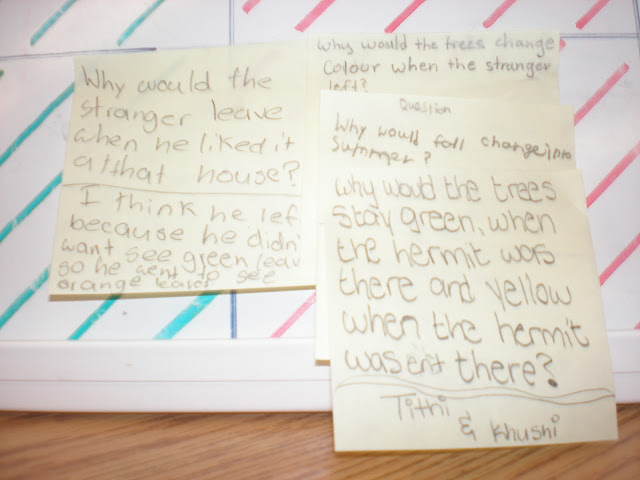 Why would the
stranger leave
when he liked it
at that house?
I think he lef
because he didn'
want see green leav
so he went to see
orange leaves
Why would the trees change
Colour when the stranger
left?
Question
Why would fall change into
Summer?
Why would the trees
stay green, when
the hermit was
there and yellow
when the hermit
wasent there?
Tithi
& Khushi